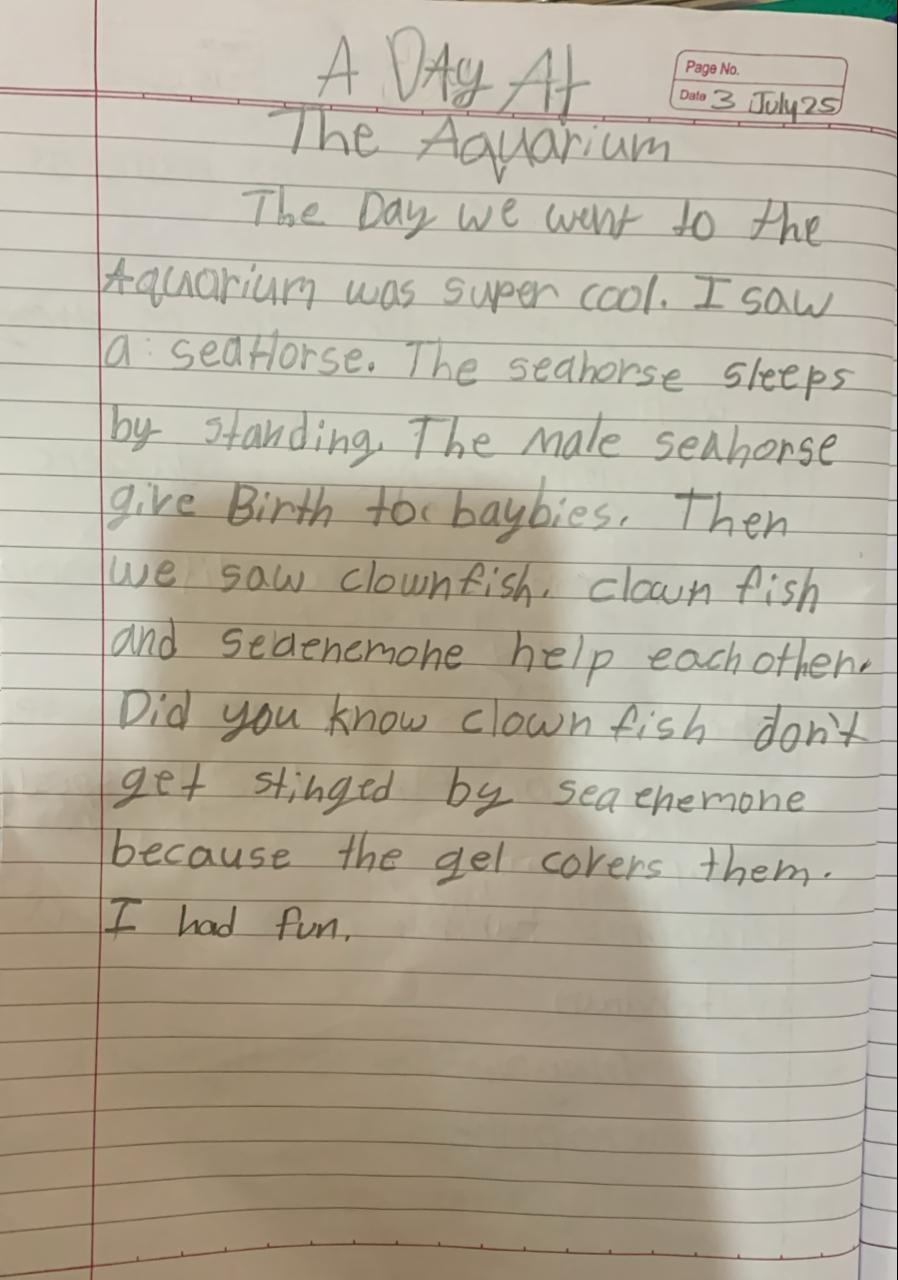 A DAy At
Page No.
Date 3 July 25
The Aquarium
The Day we went to the
Aquarium was super cool. I saw
a seaHorse. The seahorse sleeps
by standing. The male seahorse
give Birth to baybies. Then
we saw clownfish. clown fish
and seaenemone help eachother.
Did you know clown fish don't
get stinged by sea enemone
because the gel covers them.
I had fun.